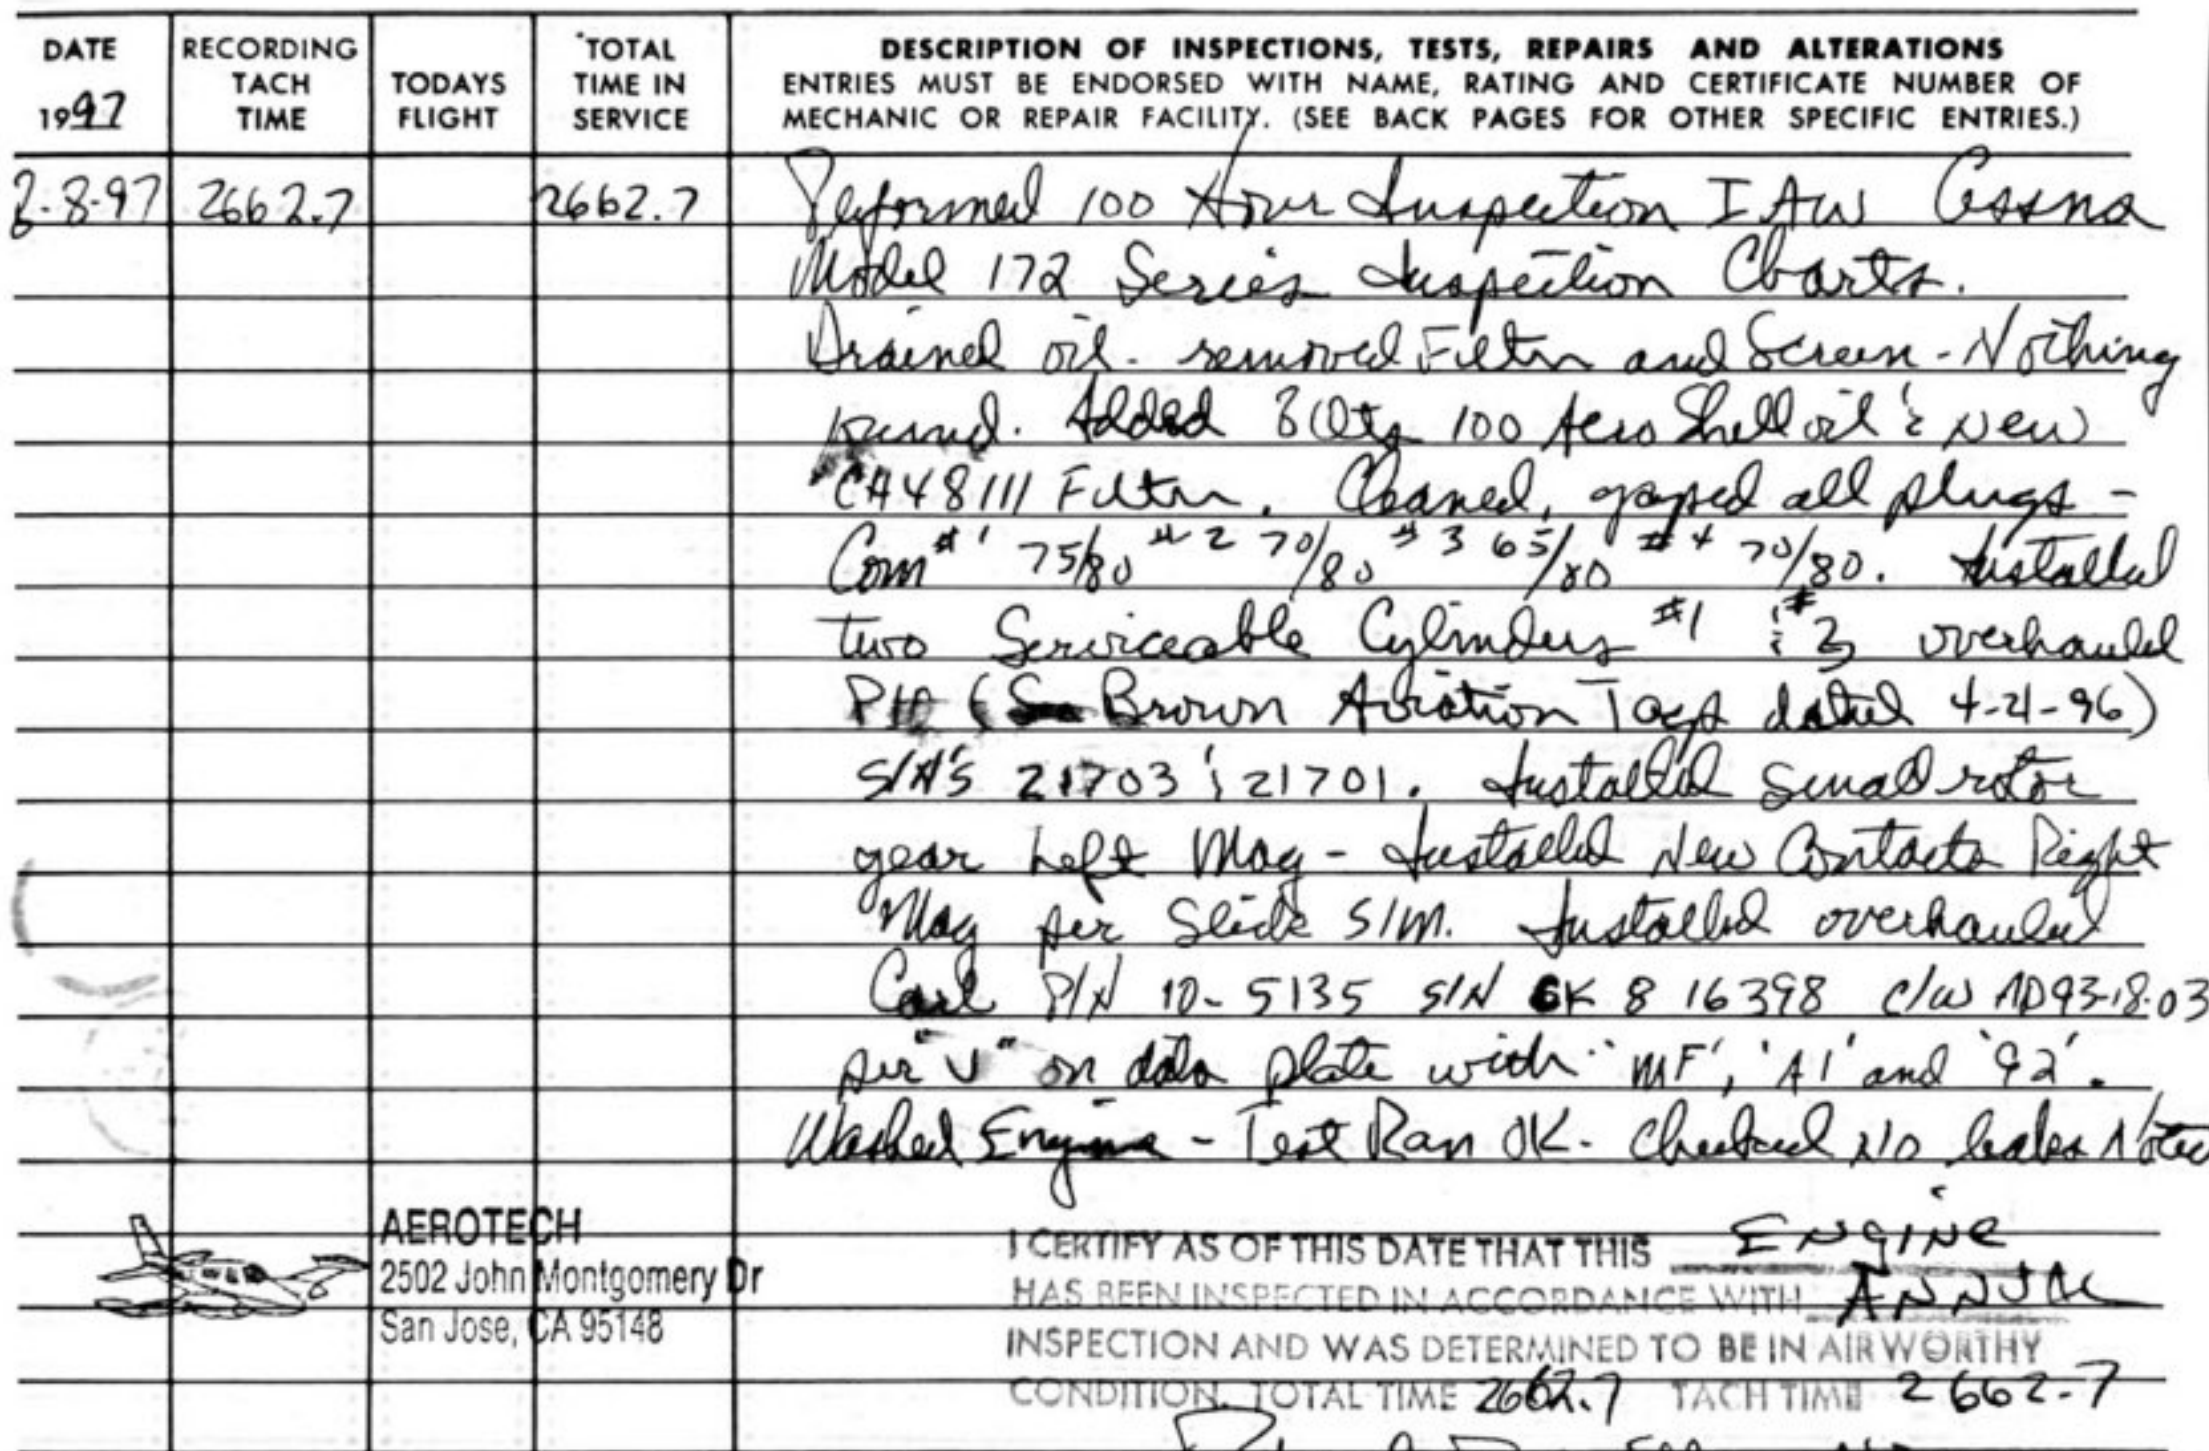 DATE
1997
RECORDING
TACH
TIME
TODAYS
FLIGHT
TOTAL
TIME IN
SERVICE
DESCRIPTION OF INSPECTIONS, TESTS, REPAIRS AND ALTERATIONS
ENTRIES MUST BE ENDORSED WITH NAME, RATING AND CERTIFICATE NUMBER OF
MECHANIC OR REPAIR FACILITY. (SEE BACK PAGES FOR OTHER SPECIFIC ENTRIES.)
2-8-97 2662.7 2662.7 Performed 100 Hour Inspection IAW Cessna
Model 172 Series Inspection Charts.
Drained oil - removed Filter and Screen - Nothing
found. Added 8 Qts 100 Aero Shell oil & New
CH48111 Filter. Cleaned, gaped all plugs -
Com #1 75/80 #2 70/80 #3 65/80 #4 70/80. Installed
two Serviceable Cylinders #1 & #3 overhauled
(Brown Aviation Tags dated 4-21-96)
S/N'S 21703 & 21701. Installed Small rotor
gear Left Mag - Installed New Contacts Right
Mag per Slick S/M. Installed overhauled
Carb P/N 10-5135 S/N CK 8 16398 C/W AD93-18-03
per "V" on data plate with 'MF', 'A1' and '92'.
Washed Engine - Test Ran OK. Checked No leaks Noted
AEROTECH
2502 John Montgomery Dr
San Jose, CA 95148
I CERTIFY AS OF THIS DATE THAT THIS ENGINE
HAS BEEN INSPECTED IN ACCORDANCE WITH ANNUAL
INSPECTION AND WAS DETERMINED TO BE IN AIRWORTHY
CONDITION. TOTAL TIME 2662.7 TACH TIME 2662.7